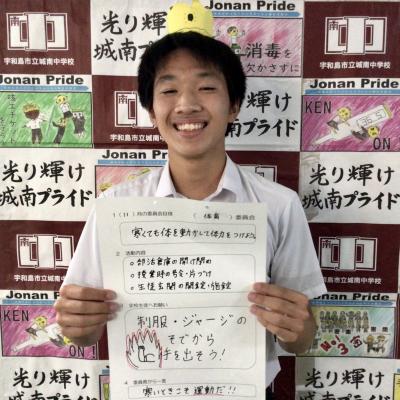 光り輝け
城南プライド
宇和島市立城南中学校
Jonan Pride
消毒
を欠かさずに
宇和島市立城南中学校
Jonan Pride
KEN
ON!
光り輝け
城南プライド
Jonan Pride
KEN
ON
36.5
光り輝け
城南プライド
宇和島市立城南中学校
光り輝け
城南プライド
Jonan Pride
ON!
Jonan Pride
No.1
光り輝け
光り輝け
1 (11)月の委員会目標 (体育)委員会
寒くても体を動かして体力をつけよう。
2 活動内容
○部活倉庫の開け閉め
○授業時の号令・片づけ
○生徒玄関の開錠・施錠
3 全校生徒へお願い
制服・ジャージの
そでから
手を出そう!
4 委員長から一言
寒いときこそ運動だ!!